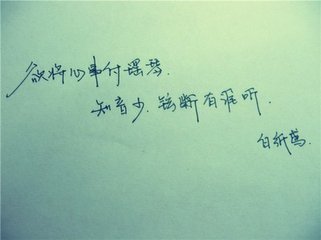 欲将心事付瑶琴.
知音少.弦断有谁听.
白纸鸢.